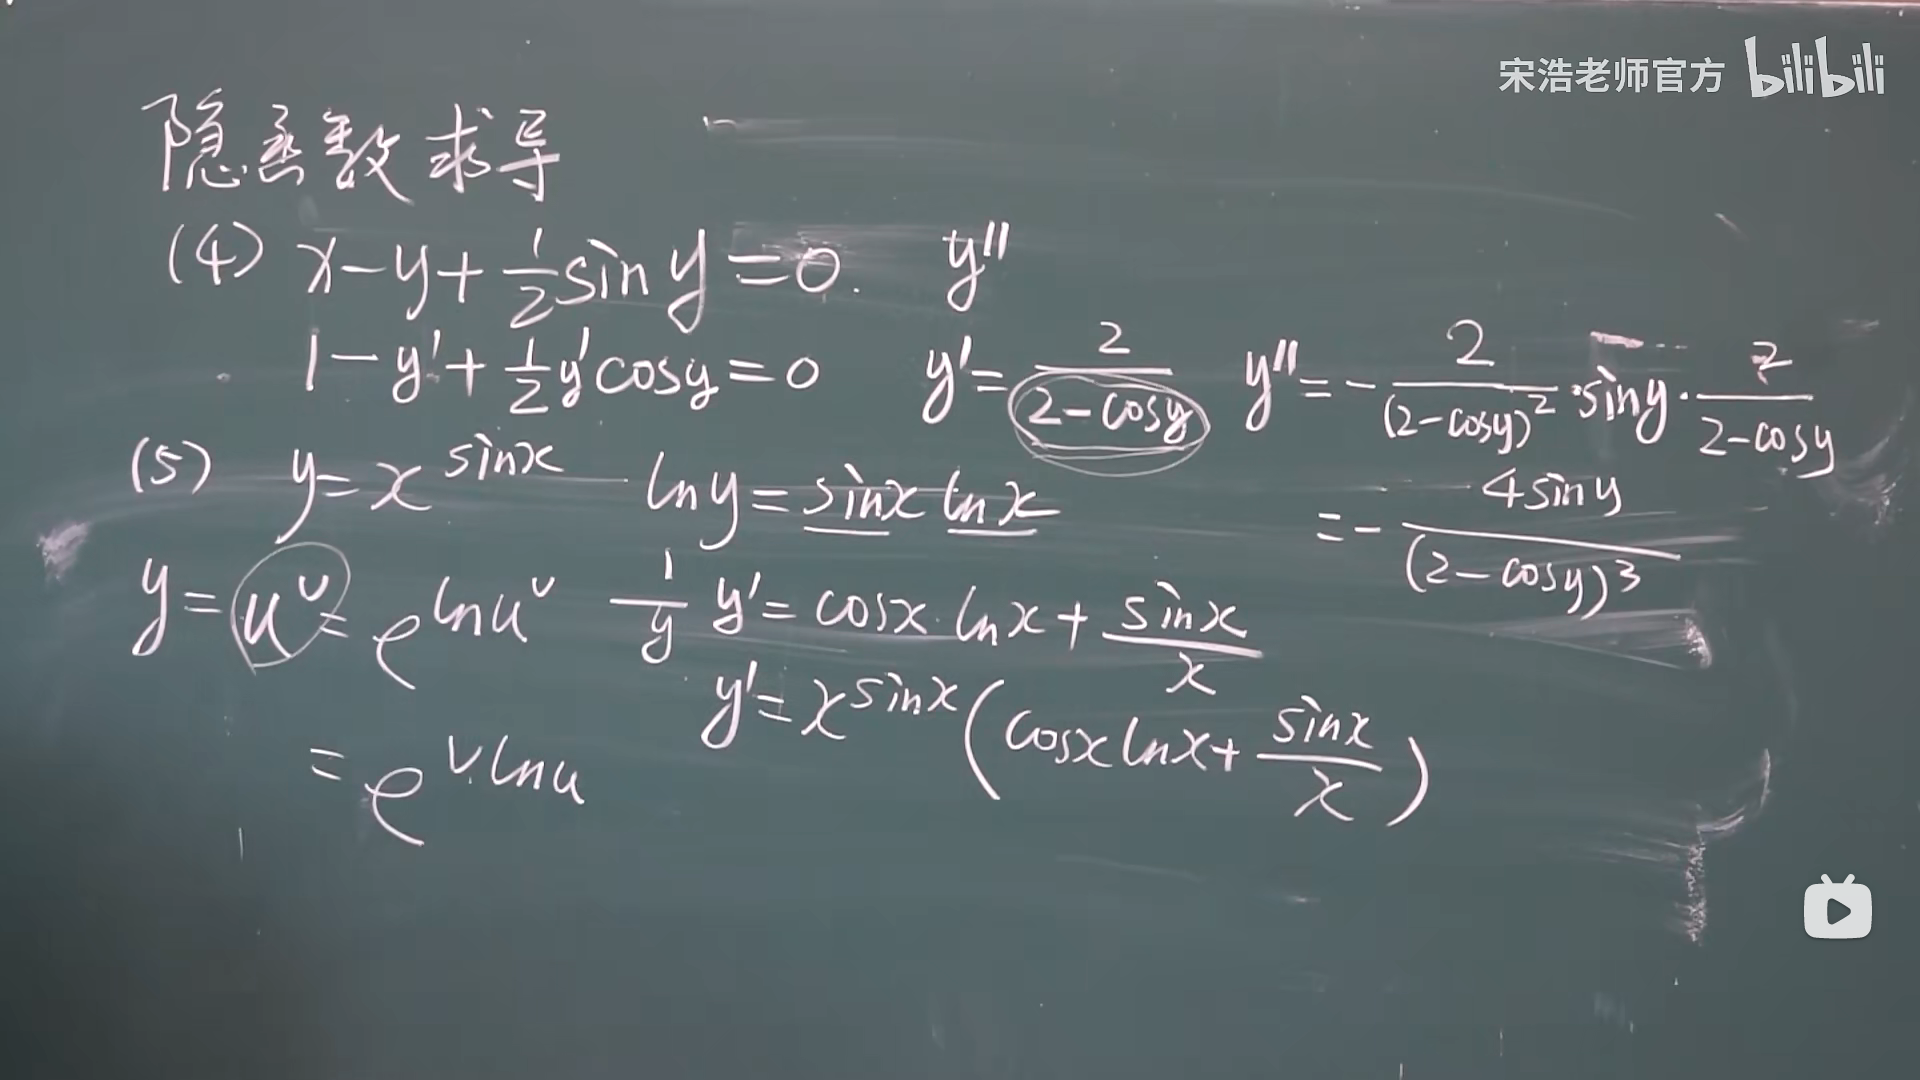 宋浩老师官方 bilibili
隐函数求导
(4) x-y+\frac{1}{2}siny=0. y''
1-y'+\frac{1}{2}y'cosy=0 y'=\frac{2}{2-cosy} y''=-\frac{2}{(2-cosy)^2}·siny·\frac{2}{2-cosy}
=-\frac{4siny}{(2-cosy)^3}
(5) y=x^{sinx} lny=sinx lnx
y=u^v=e^{lnu^v} \frac{1}{y}y'=cosx·lnx+\frac{sinx}{x}
=e^{vlnu} y'=x^{sinx}(cosxlnx+\frac{sinx}{x})